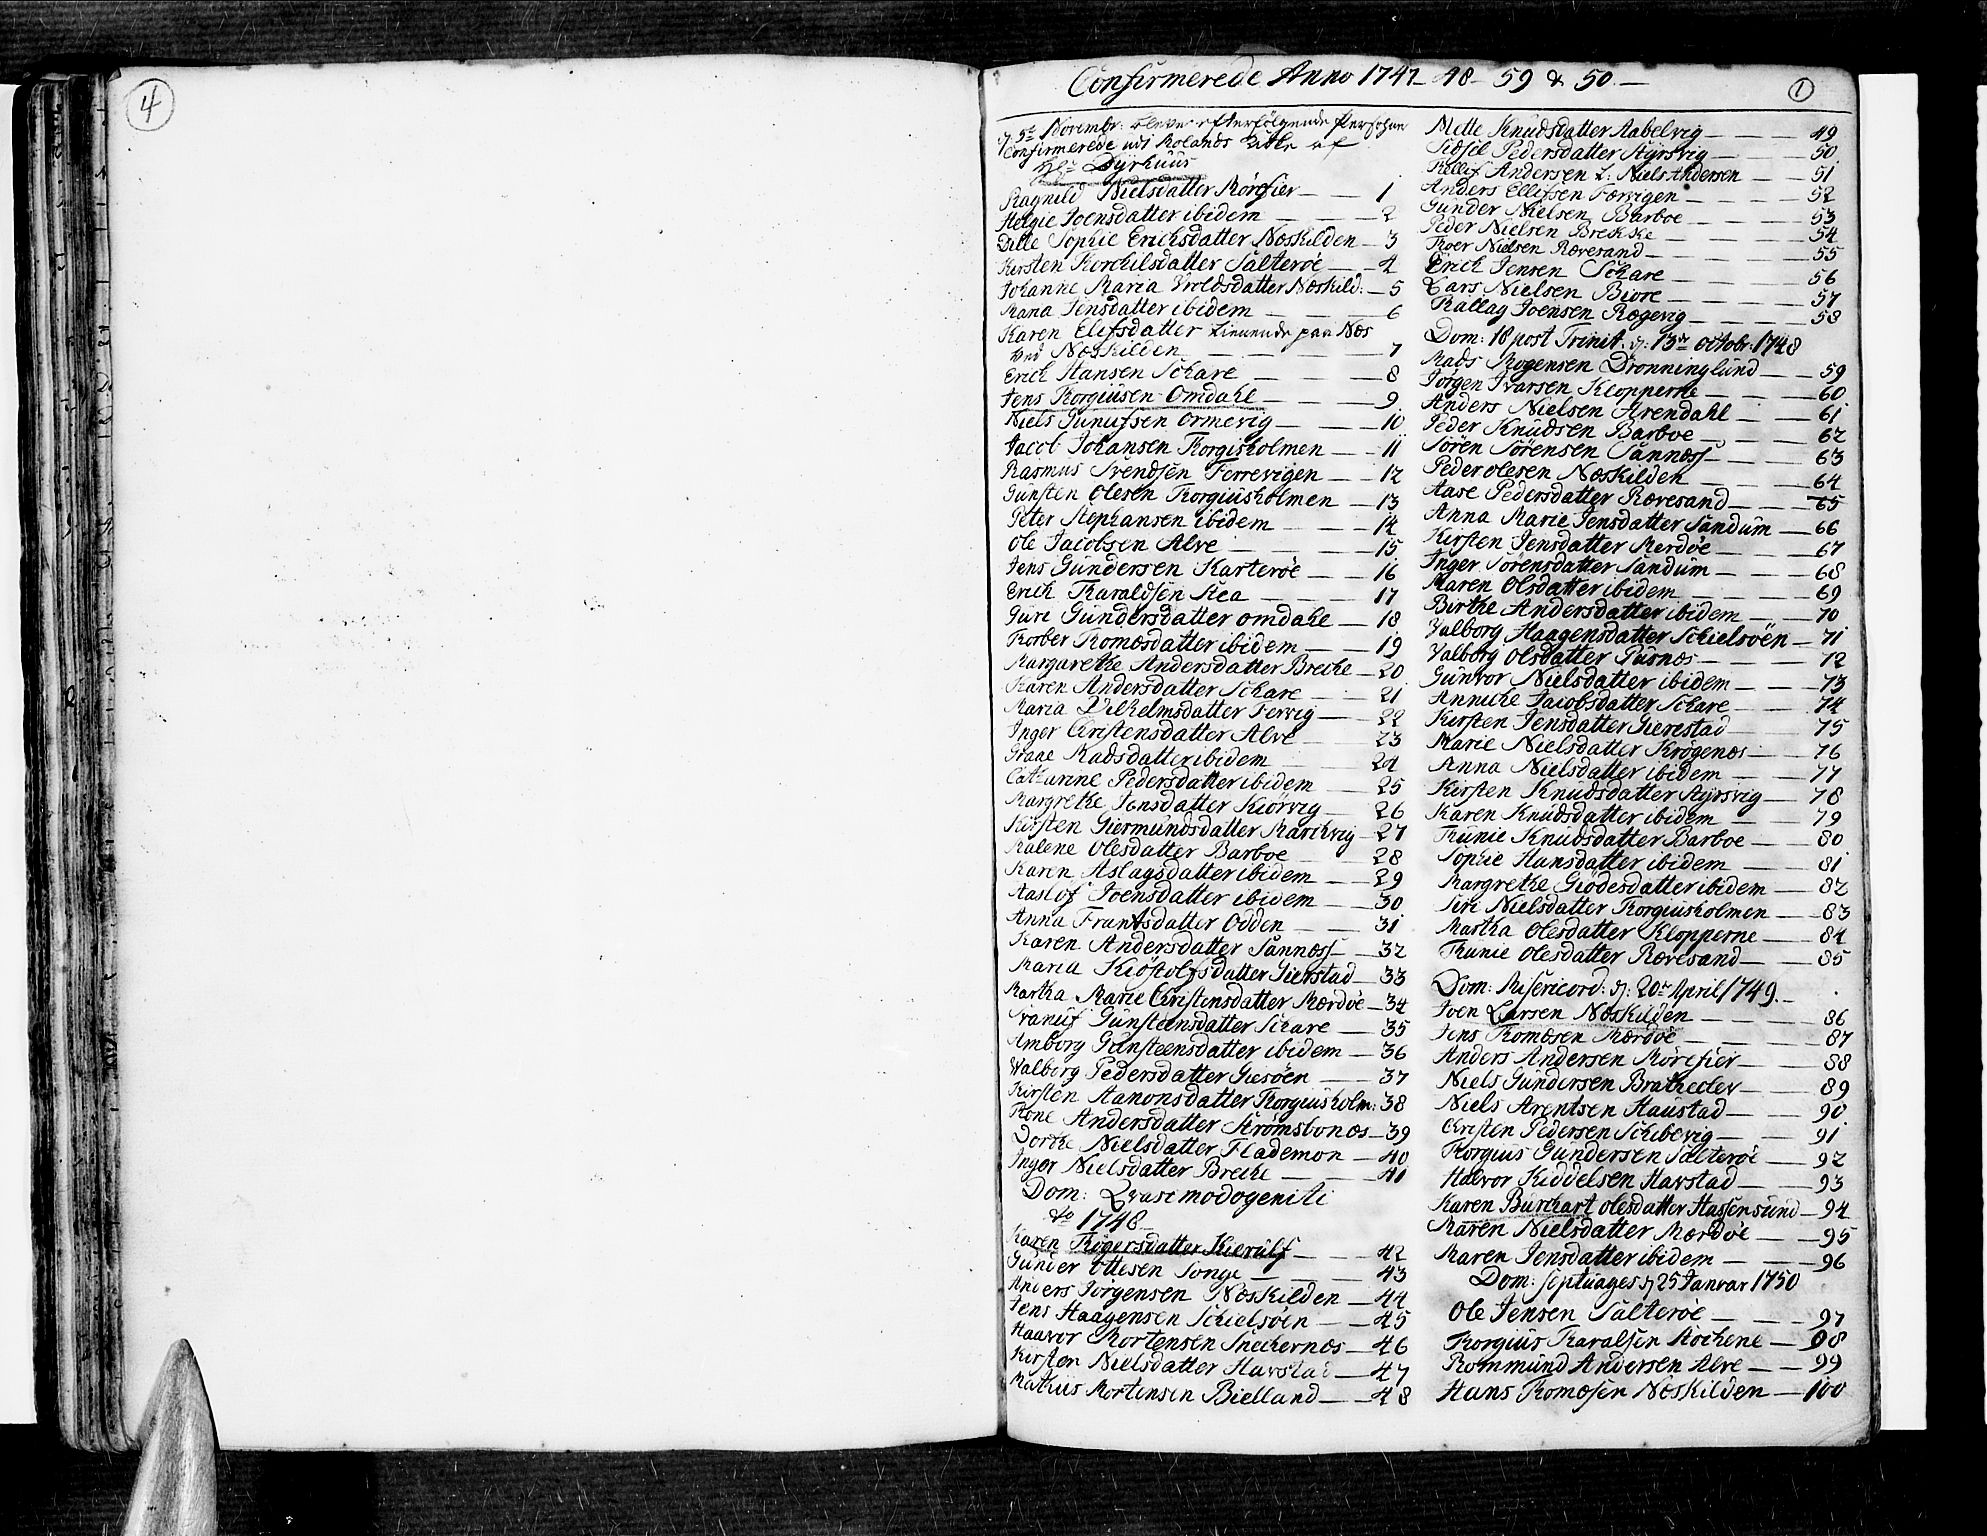 4
Confirmerede Anno 1747 48 59 & 50
1
d. 5te Novembr: bleve efterfölgende Personer
Confirmerede udi Kolands Kirke af
Hr Dyrhuus
Ragnild Nielsdatter Mörefier 1
Helgie Joensdatter ibidem 2
Ditte Sophie Erichsdatter Næskilden 3
Kirsten Torchilsdatter Salteröe 4
Johanne Maria Troldsdatter Næskild: 5
Maria Jensdatter ibidem 6
Karen Elefsdatter tienende paa Næs
ved Næskilden 7
Erich Hansen Schare 8
Jens Torgiusen Omdahl 9
Niels Gunufsen Ormevig 10
Jacob Johansen Torgisholmen 11
Rasmus Svendsen Ferrevigen 12
Gunsten Olesen Torgiusholmen 13
Peter Stephansen ibidem 14
Ole Jacobsen Alve 15
Jens Gundersen Karteröe 16
Erich Taraldsen Stea 17
Guri Gundersdatter Omdahl 18
Torber Tomæsdatter ibidem 19
Margarethe Andersdatter Breche 20
Karen Andersdatter Schare 21
Maria Vilhelmsdatter Fervig 22
Inger Christensdatter Alve 23
Grane Madsdatter ibidem 24
Catharine Pedersdatter ibidem 25
Margrethe Jensdatter Kiörvig 26
Kirsten Giermundsdatter Marchvig 27
Malene Olesdatter Barboe 28
Karen Aslagsdatter ibidem 29
Aaslof Joensdatter ibidem 30
Anna Frantsdatter Odden 31
Karen Andersdatter Sannæss 32
Maria Kiöstolfsdatter Gierstad 33
Martha Marie Christensdatter Mærdöe 34
Gunsteensdatter Schare 35
Amborg Gunsteensdatter ibidem 36
Walborg Pedersdatter Giesöen 37
Kirsten Aanonsdatter Torgiusholm: 38
Tone Andersdatter Strömsbonæs 39
Dorthe Nielsdatter Flademon 40
Inger Nielsdatter Breche 41
Dom: Qvasimodogeniti
Ao 1748
Karen Rögersdatter Kierulf 42
Gunder Ottesen Songe 43
Anders Jörgensen Næskilden 44
Jens Haagensen Schielsöen 45
Haavor Mortensen Snechernæs 46
Kirsten Nielsdatter Havstad 47
Mathias Mortensen Bielland 48
Mette Knudsdatter Aabelvig 49
Sidsel Pedersdatter Styrsvig 50
Rellef Andersen L: Niels Andersen 51
Anders Ellefsen Færvigen 52
Gunder Nielsen Barboe 53
Peder Nielsen Brekke 54
Thoer Nielsen Rævesand 55
Erich Jensen Schare 56
Lars Nielsen Biore 57
Tallag Joensen Rægevig 58
Dom: 18 post Trinit. d: 13de octobr: 1748
Mads Mogensen Dronninglund 59
Jörgen Ivarsen Klopperne 60
Anders Nielsen Arendahl 61
Peder Knudsen Barboe 62
Sören Sörensen Sannæss 63
Peder Olesen Næskilden 64
Aase Pedersdatter Rævesand 65
Anna Marie Jensdatter Sandum 66
Kirsten Jensdatter Merdöe 67
Inger Sörensdatter Sandum 68
Maren Olsdatter ibidem 69
Birthe Andersdatter ibidem 70
Valborg Haagensdatter Schielsöen 71
Valborg Olsdatter Pusnæs 72
Gunvor Nielsdatter ibidem 73
Anniche Jacobsdatter Schare 74
Kirsten Jensdatter Gierestad 75
Marie Nielsdatter Krögenæs 76
Anna Nielsdatter ibidem 77
Kirsten Knudsdatter Styrsvig 78
Karen Knudsdatter ibidem 79
Thunie Knudsdatter Barboe 80
Sophie Hansdatter ibidem 81
Margrethe Giödesdatter ibidem 82
Siri Nielsdatter Torgiusholmen 83
Martha Olesdatter Klopperne 84
Thunie Olesdatter Rævesand 85
Dom: Misericord: d: 20de April 1749
Joen Larsen Næskilden 86
Jens Tomæsen Mærdöe 87
Anders Andersen Mörefier 88
Niels Gundersen Brattecler 89
Niels Arentsen Haustad 90
Christen Pedersen Schibevig 91
Torgius Gundersen Salteröe 92
Halvor Kiddelsen Havstad 93
Karen Burchart Olesdatter Hassensund 94
Maren Nielsdatter Mærdöe 95
Maren Jensdatter ibidem 96
Dom: Septuages d 25 Januar 1750
Ole Jensen Salteröe 97
Torgius Taralsen Stöchene 98
Rommund Andersen Alve 99
Hans Tomæsen Næskilden 100